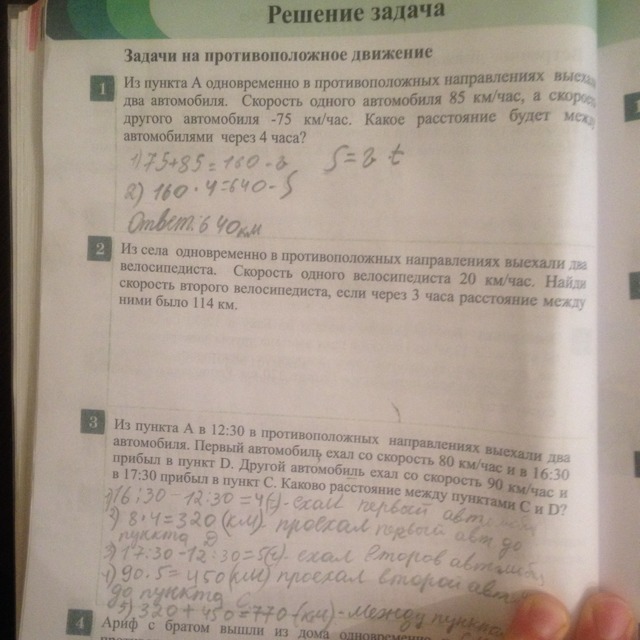 Решение задача
Задачи на противоположное движение
1
Из пункта А одновременно в противоположных направлениях выехали
два автомобиля. Скорость одного автомобиля 85 км/час, а скорость
другого автомобиля -75 км/час. Какое расстояние будет между
автомобилями через 4 часа?
1) 75+85=160-
2) 160·4=640-S
Ответ: 640км
2
Из села одновременно в противоположных направлениях выехали два
велосипедиста. Скорость одного велосипедиста 20 км/час. Найди
скорость второго велосипедиста, если через 3 часа расстояние между
ними было 114 км.
3
Из пункта А в 12:30 в противоположных направлениях выехали два
автомобиля. Первый автомобиль ехал со скорость 80 км/час и в 16:30
прибыл в пункт D. Другой автомобиль ехал со скорость 90 км/час и
в 17:30 прибыл в пункт С. Каково расстояние между пунктами С и D?
16:30-12:30=4(ч)-ехал первый автомобиль
2) 8·4=320 (км) проехал первый авт до
пункта D
3) 17:30-12:30=5(ч)- ехал второв автомобиль
4) 90·5=450(км) проехал второй
до пункта С
5) 320+450=770(км)-между
4
Ариф с братом вышли из дома одновременно